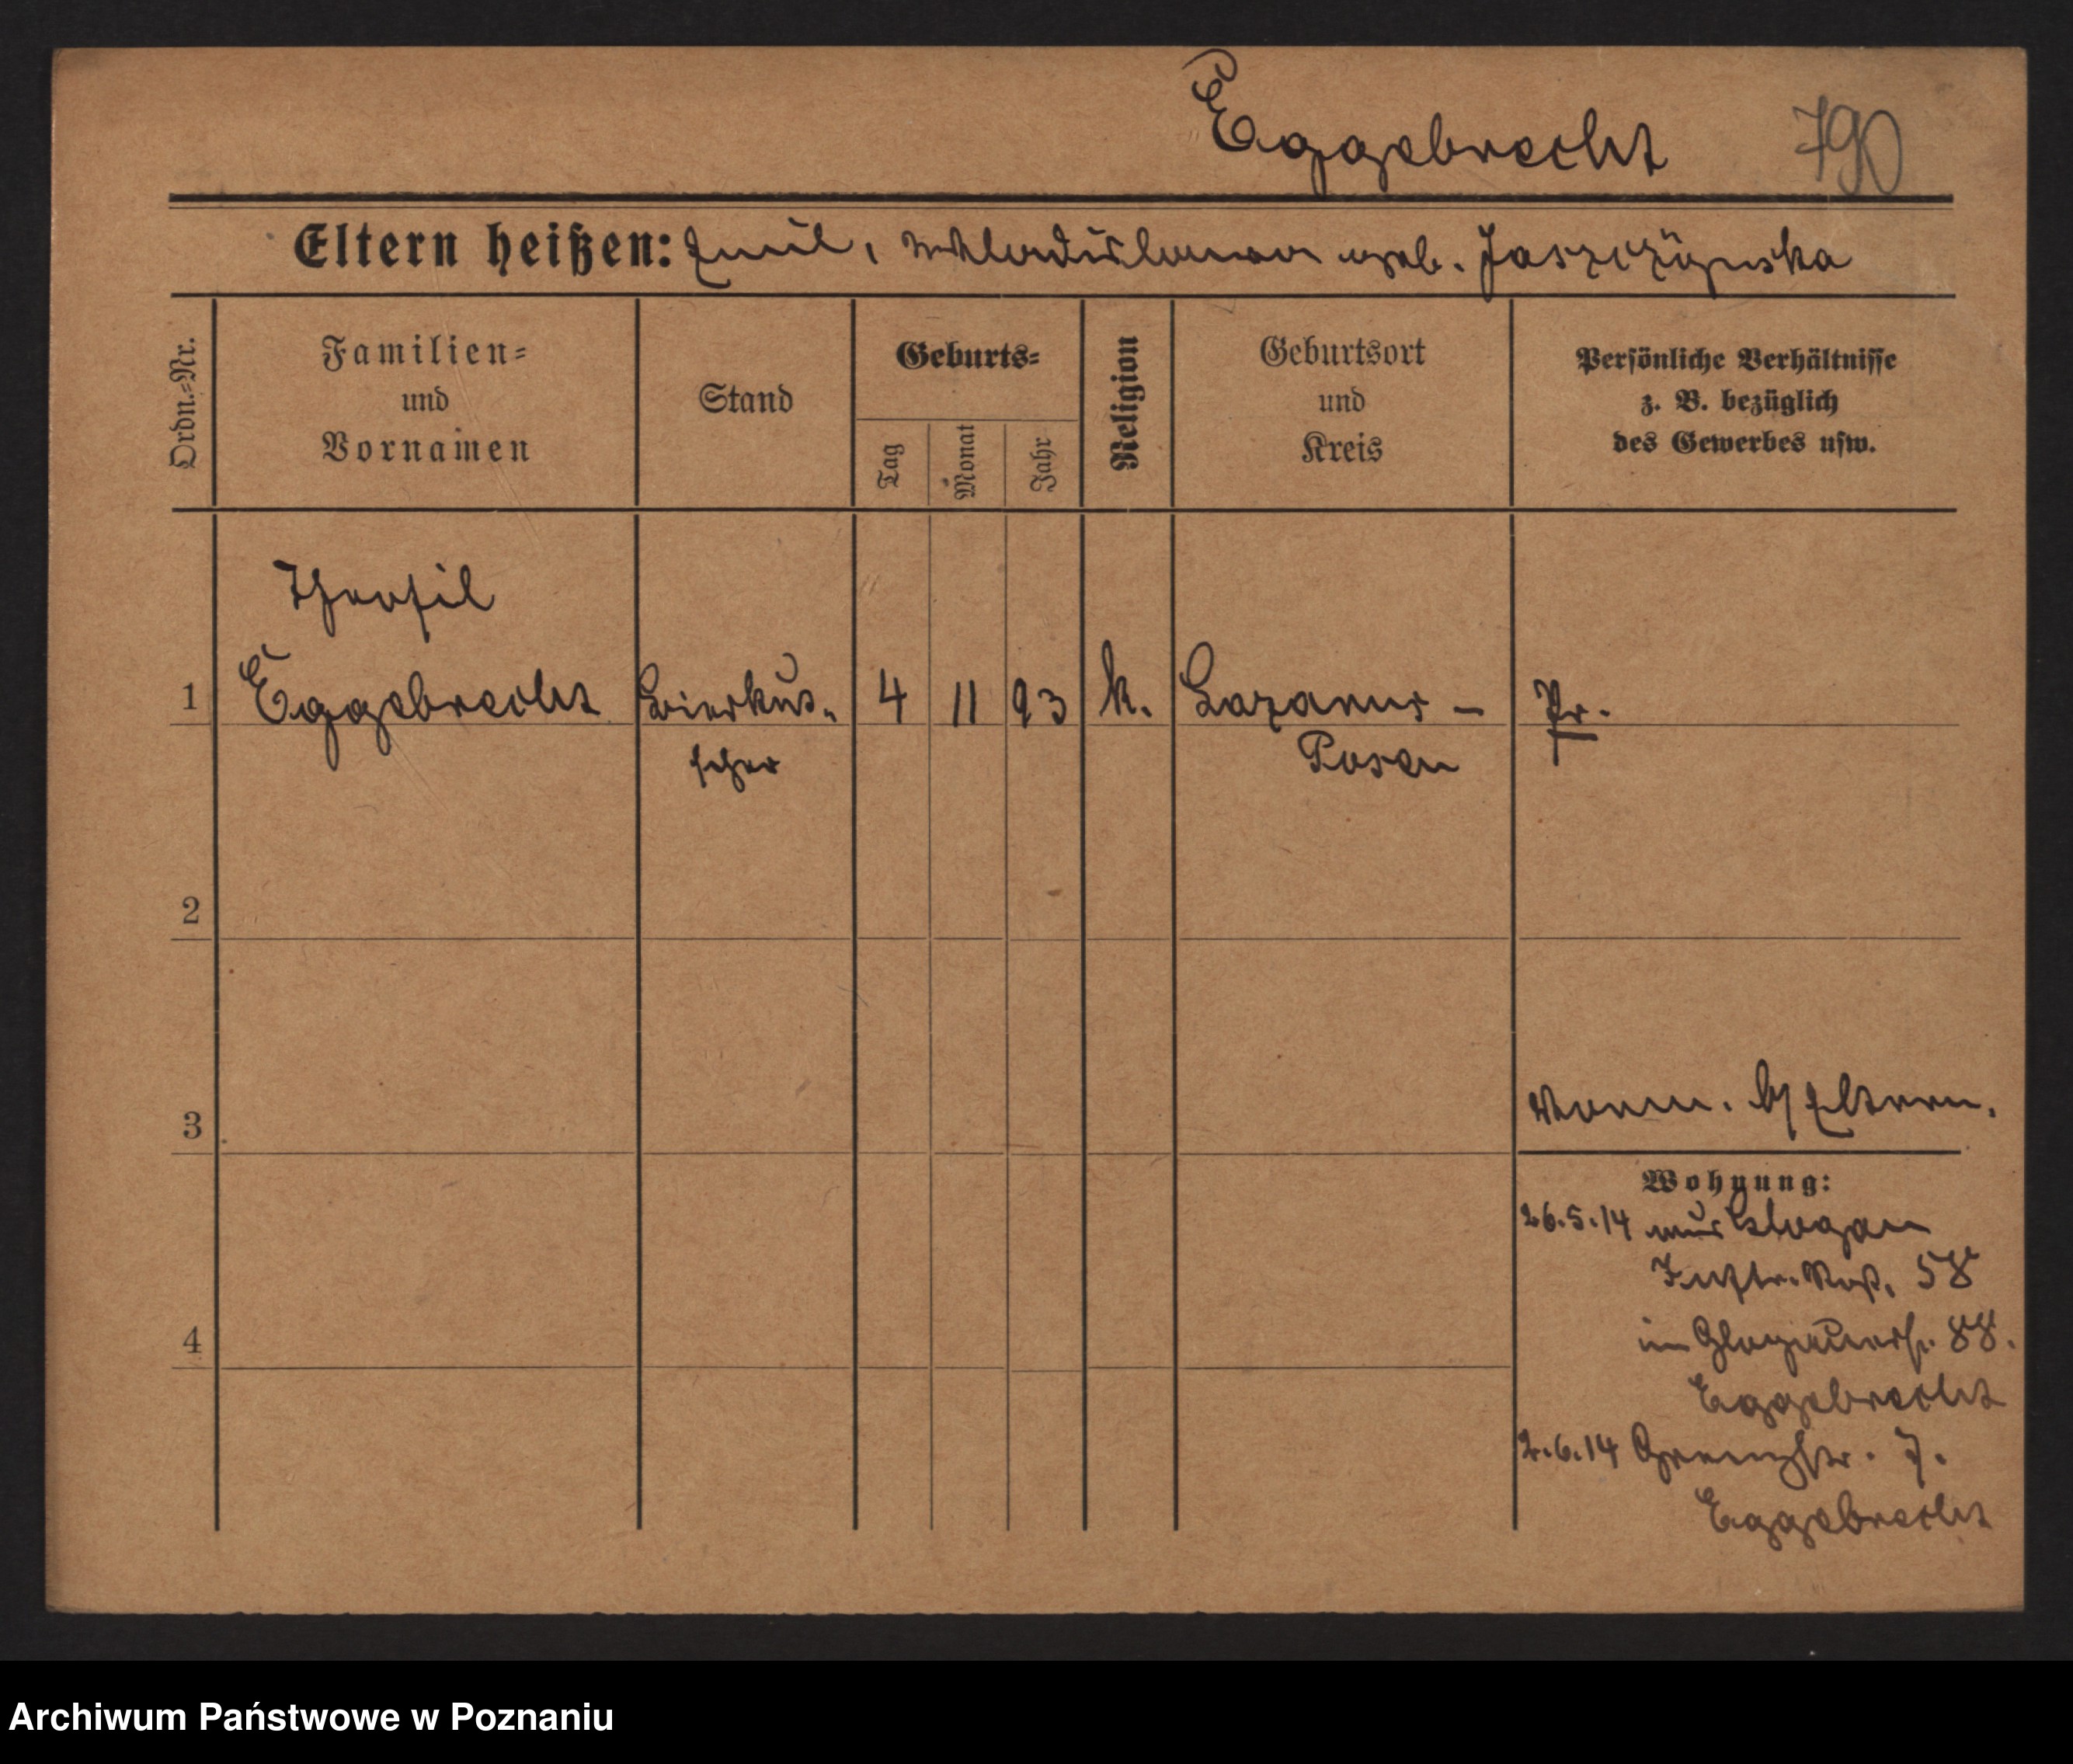 Eggebrecht 790
Eltern heißen: Emil, Wladislawa geb. Jaszczýnska
Ordn.-Nr.
Familien-
und
Vornamen
Stand
Geburts-
Tag
Monat
Jahr
Religion
Geburtsort
und
Kreis
Persönliche Verhältnisse
z. B. bezüglich
des Gewerbes usw.
Theofil
1 Eggebrecht Bierkut- 4 11 93 k. Lazarus - Pr.
scher Posen
2
Eltern.
3
Wohnung:
26.5.14 aus Glogau
Inftr. Rgt. 58
in Glogauerstr. 88.
Eggebrecht
4
2.6.14 Grenzstr. 7.
Eggebrecht
Archiwum Państwowe w Poznaniu